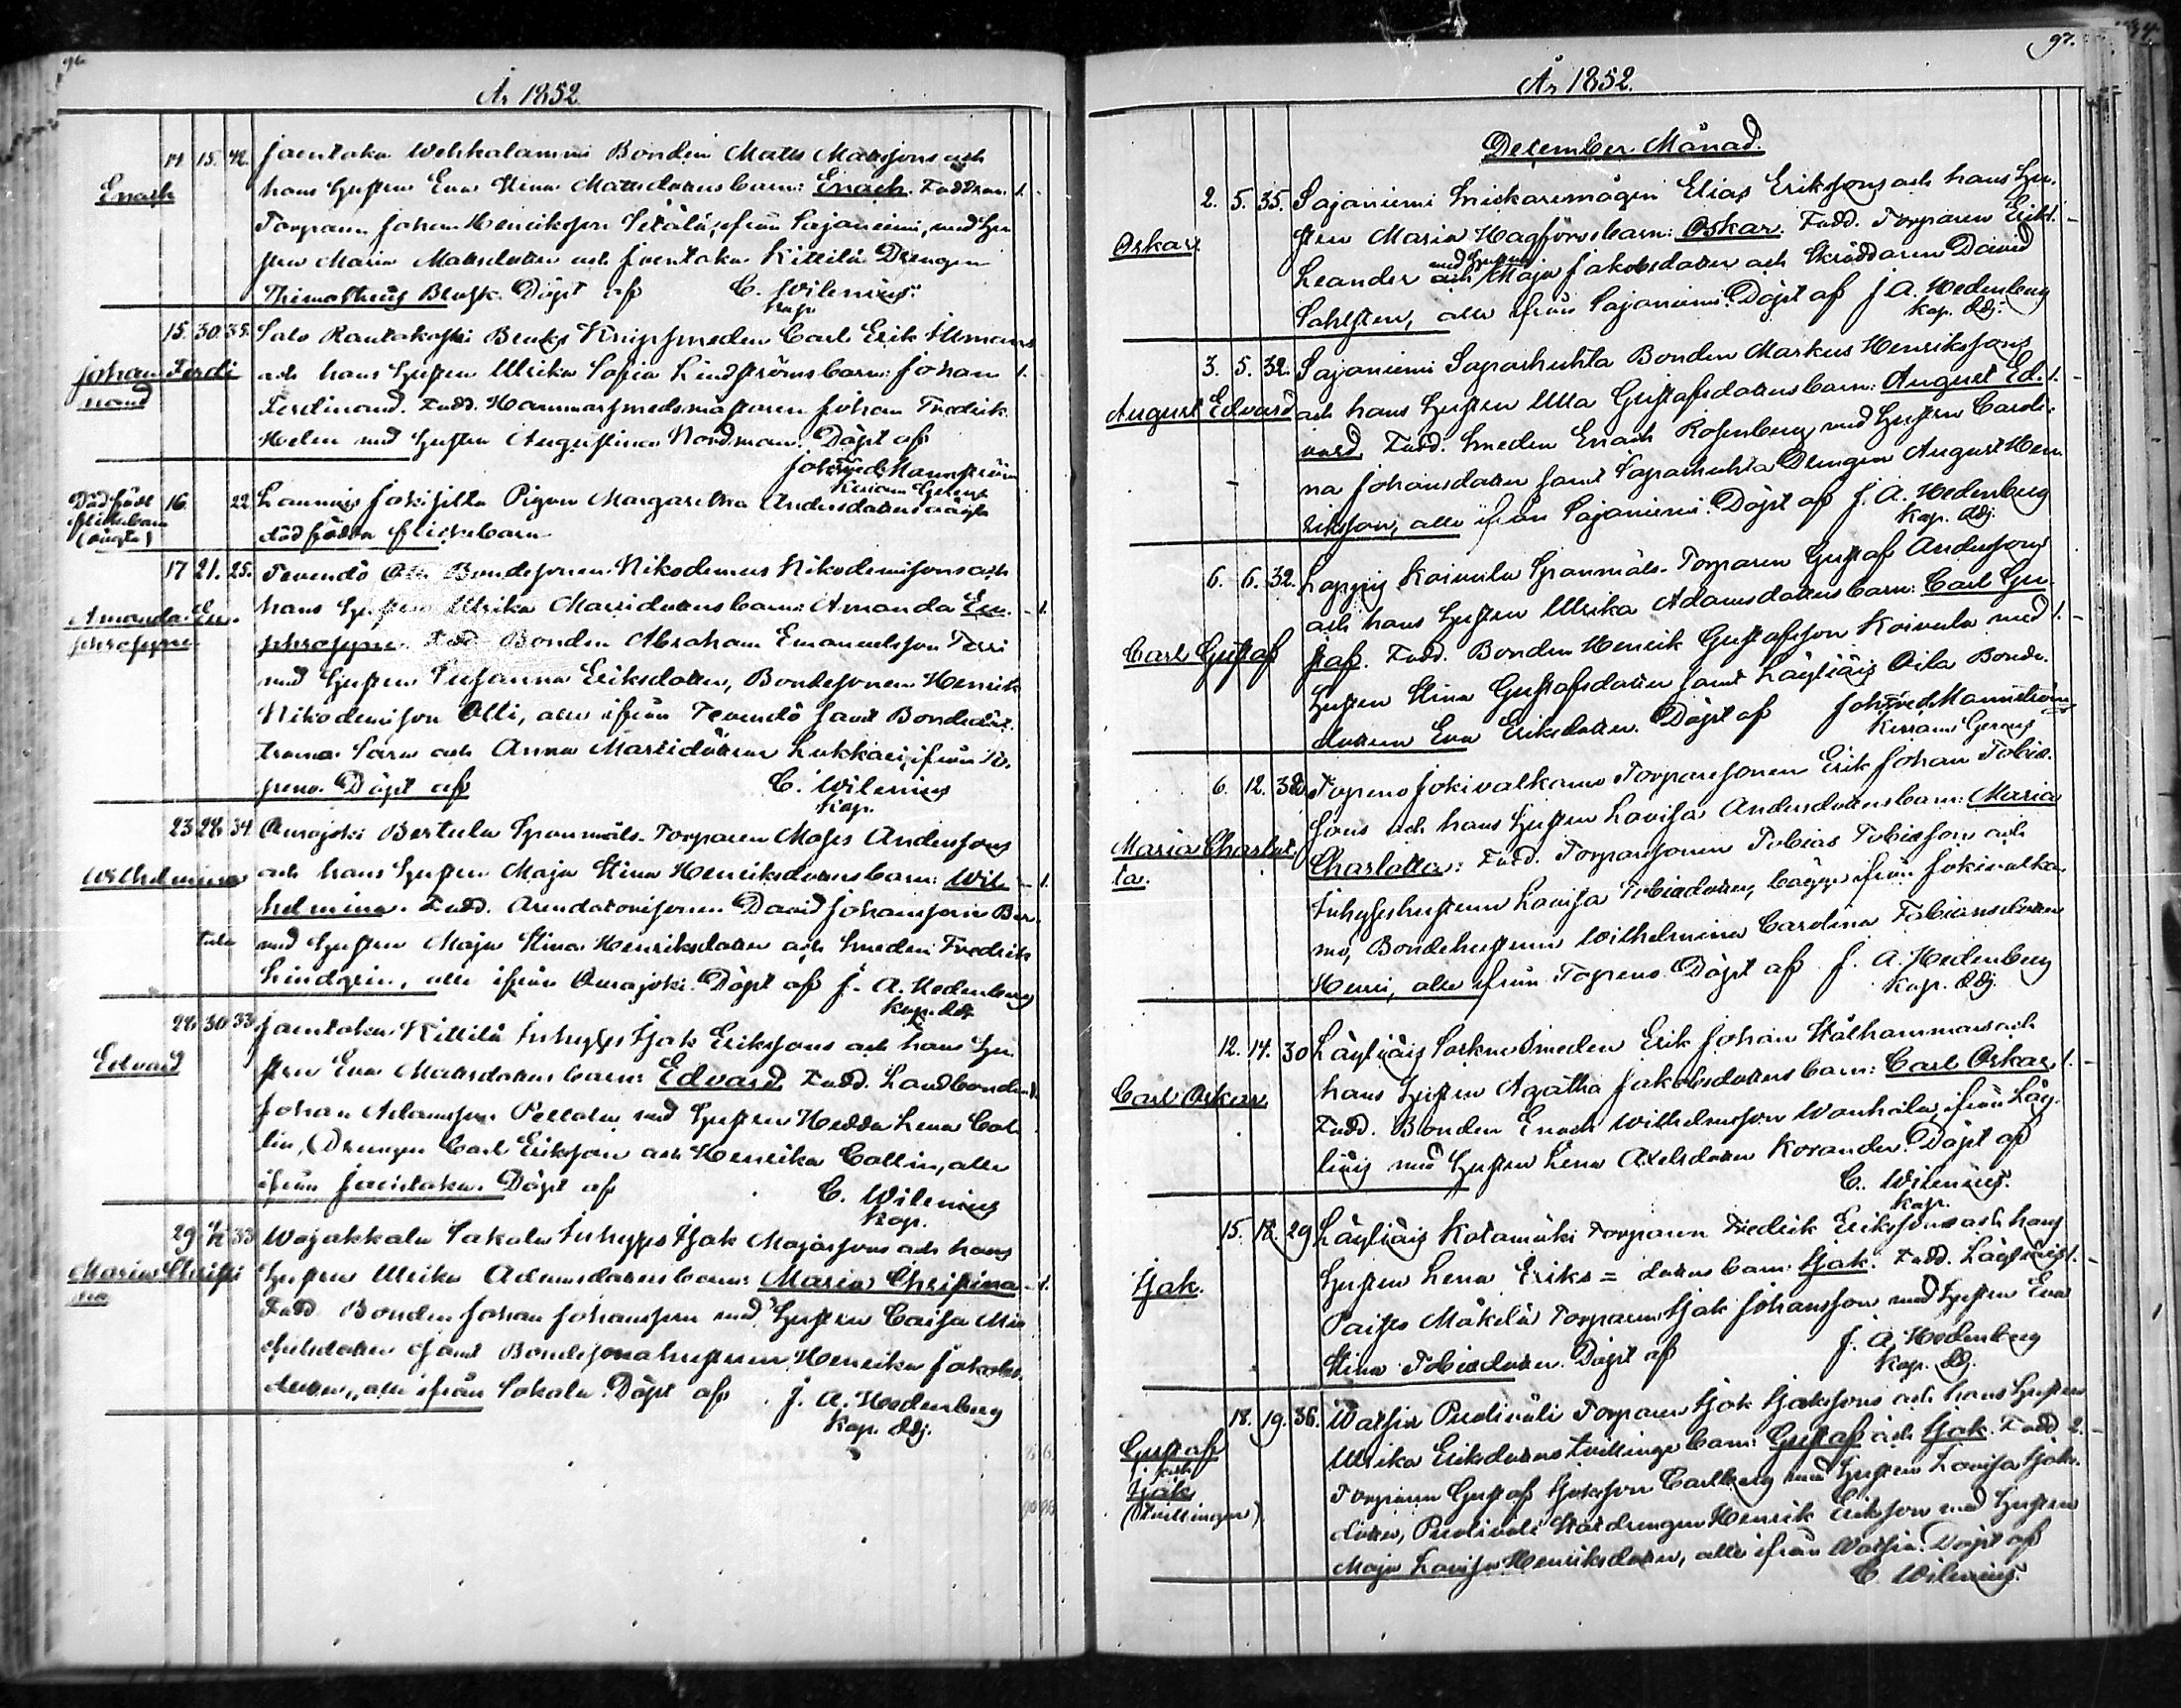 96.
År 1852.
14 15. 42. Jaentaka Wehkalammi Bonden Matts Matssons och
Enach
hans Hustru Eva Stina Mattsdotters barn: Enach. Faddrar. 1.
Torparen Johan Henriksson Setälä, ifrån Sajaniemi, med Hu-
stru Maria Mattsdotter och Jaentaka Kittilä Drengen
Thimotheus Blask. Döpt af C. Wilenius.
Kap.
15. 30. 35. Salo Rautakoski Bruks Knipsmeden Carl Erik
Johan Ferdi
nand
och hans Hustru Ulrika Sofia Lindströms barn: Johan 1.
Ferdinand. Fadd. Hammarsmedsmästaren Johan Fredrik
Helen med Hustru Augustina Nordman. Döpt af
Joh Fred Mannström
Dödfödt
flickebarn
(oägta)
16. 22. Jokisilta Pigan Margaretha Andersdotters oägta
dödfödda flickebarn
17 21. 25. Bondesonen Nikodemus Nikodemissons och
Amanda Eu-
phrosyne
hans Hustru Ulrika Mattsdotters barn: Amanda Eu- 1.
phrosyne. Fadd. Bonden Abraham Emanuelsson
med Hustru Susanna Eriksdotter, Bondesonen Henrik
Nikodemisson Olli, alla ifrån samt Bondedöt-
trarna Sara och Anna ifrån To-
preno. Döpt af C. Wilenius
Kap.
23 28 34. Bertula Spanmåls-Torparen Moses Anderssons
Wilhelmina
och hans Hustru Maja Stina Henriksdotters barn: Wil- 1.
helmina. Fadd. Arendatorssonen David Johansson Ber-
tula med Hustru Maja Stina Henriksdotter och Smeden Fredrik
Lindgren, alla ifrån Döpt af J. A. Hedenberg
Kap. Adj.
28 30 33. Jaentaka Kittilä Inhyses Isak Erikssons och hans Hu-
Edvard
stru Eva Mattsdotters barn: Edvard. Fadd. Landbonden 1.
Johan Adamsson med Hustru Hedda Lena Col-
lin, Drengen Carl Eriksson och Henrika Collin, alla
ifrån Jaentaka. Döpt af C. Wilenius
Kap.
29 33 Wojakkala Sakala Inhyses Isak och hans
Maria Christi
na
Hustru Ulrika Adamsdotters barn: Maria Christina 1.
Fadd. Bonden Johan Johansson med Hustru Caisa Mi-
chelsdotter samt Bondesonahustrun Henrika Jakobs-
dotter, alla ifrån Sakala. Döpt af J. A. Hedenberg
Kap. Adj.
97.
År 1852.
December Månad.
2. 5. 35. Sajaniemi Snickaremågen Elias Erikssons och hans Hu-
Oskar.
stru Maria Hagfors barn: Oskar. Fadd. Torparen Erik 1.
Leander med Hustru Maja Jakobsdotter och Skräddaren David
Sahlsten, alla ifrån Sajaniemi. Döpt af J. A. Hedenberg
Kap. Adj.
3. 5. 32. Sajaniemi Saparhuhta Bonden Markus Henrikssons
August Edvard
och hans Hustru Ulla Gustafsdotters barn: August Ed- 1.
vard. Fadd. Smeden Enach Rosenberg med Hustru Caroli-
na Johansdotter samt Saparhuhta Drengen August Hen-
riksson, alla ifrån Sajaniemi. Döpt af J. A. Hedenberg
Kap. Adj.
6. 6. 32. Koivula Spanmåls-Torparen Gustaf Anderssons
Carl Gustaf
och hans Hustru Ulrika Adamsdotters barn: Carl Gu-
staf. Fadd. Bonden Henrik Gustafsson Koivula med 1.
Hustru Stina Gustafsdotter samt Läyliäis Oila Bonde-
dottern Eva Eriksdotter. Döpt af Joh Fred Mannström
6. 12. 32. Topeno Jokivalkama Torparesonen Erik Johan Tobias-
Maria Charlot-
ta.
sons och hans Hustru Lovisa Andersdotters barn: Maria
Charlotta: Fadd. Torparesonen Tobias Tobiasson och
Inhyseshustrun Lovisa Tobiasdotter, bägge ifrån Jokivalka-
ma, Bondehustrun Wilhelmina Carolina Fabiansdotter
Henri, alla ifrån Topeno. Döpt af J. A. Hedenberg
Kap. Adj.
12. 14. 30 Läyliäis Smeden Erik Johan Stålhammars och
Carl Oskar.
hans Hustru Agatha Jakobsdotters barn: Carl Oskar. 1.
Fadd. Bonden Enach Wilhelmsson Wanhala, ifrån Läy-
liäis med Hustru Lena Axelsdotter Korander. Döpt af
C. Wilenius.
Kap.
15. 18. 29 Läyliäis Kotamäki Torparen Fredrik Erikssons och hans
Isak.
Hustru Lena Eriks = dotters barn: Isak. Fadd. Läyliäis 1.
Mäkelä Torparen Isak Johansson med Hustru Eva
Stina Tobiasdotter. Döpt af J. A. Hedenberg
Kap. Adj.
18. 19. 36. Watsia Torparen Isak Isakssons och hans Hustru
Gustaf
och
Isak
(Tvillingar)
Ulrika Eriksdotters tvillingebarn: Gustaf och Isak. Fadd 2.
Torparen Gustaf Isaksson Carlberg med Hustru Lovisa Isaks-
dotter, Henrik Eriksson med Hustru
Maja Lovisa Henriksdotter, alla ifrån Watsia. Döpt af
C. Wilenius.